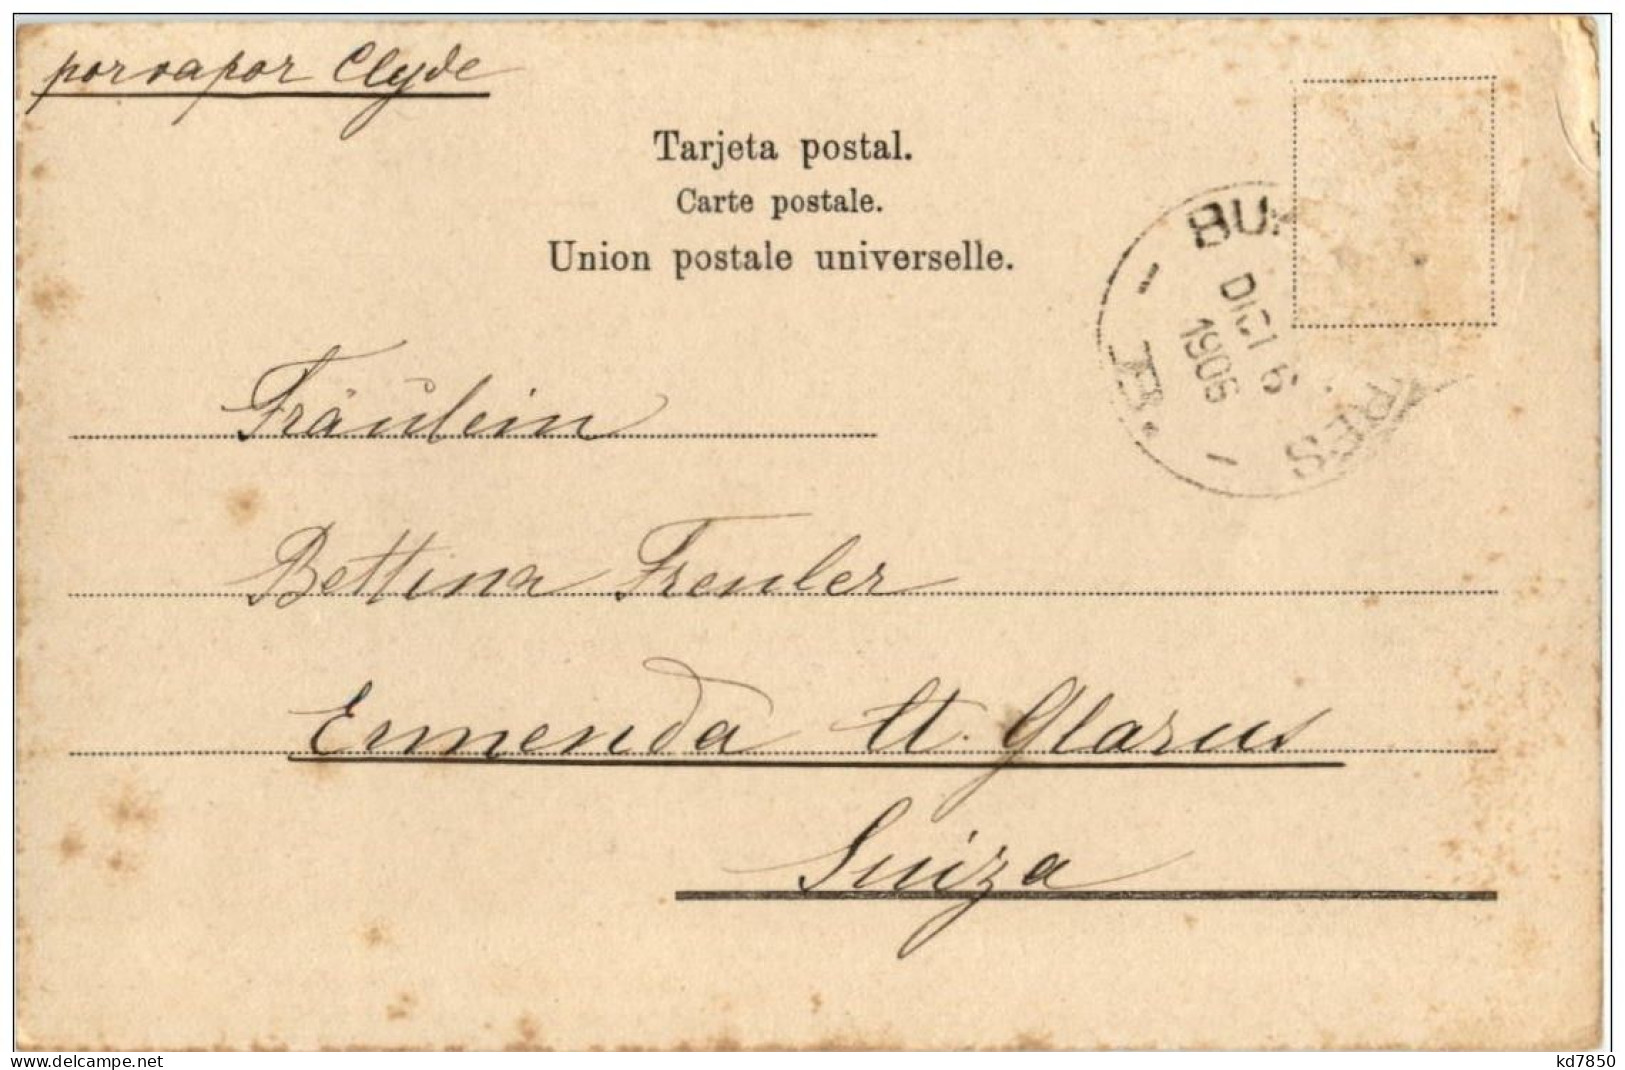 por vapor Clyde
Tarjeta postal.
Carte postale.
Union postale universelle.
BU RES
DIC 1 6
1906
B.
Fräulein
Bettina Freuler
Ennenda Ct. Glarus
Suiza
www.delcampe.net
kd7850